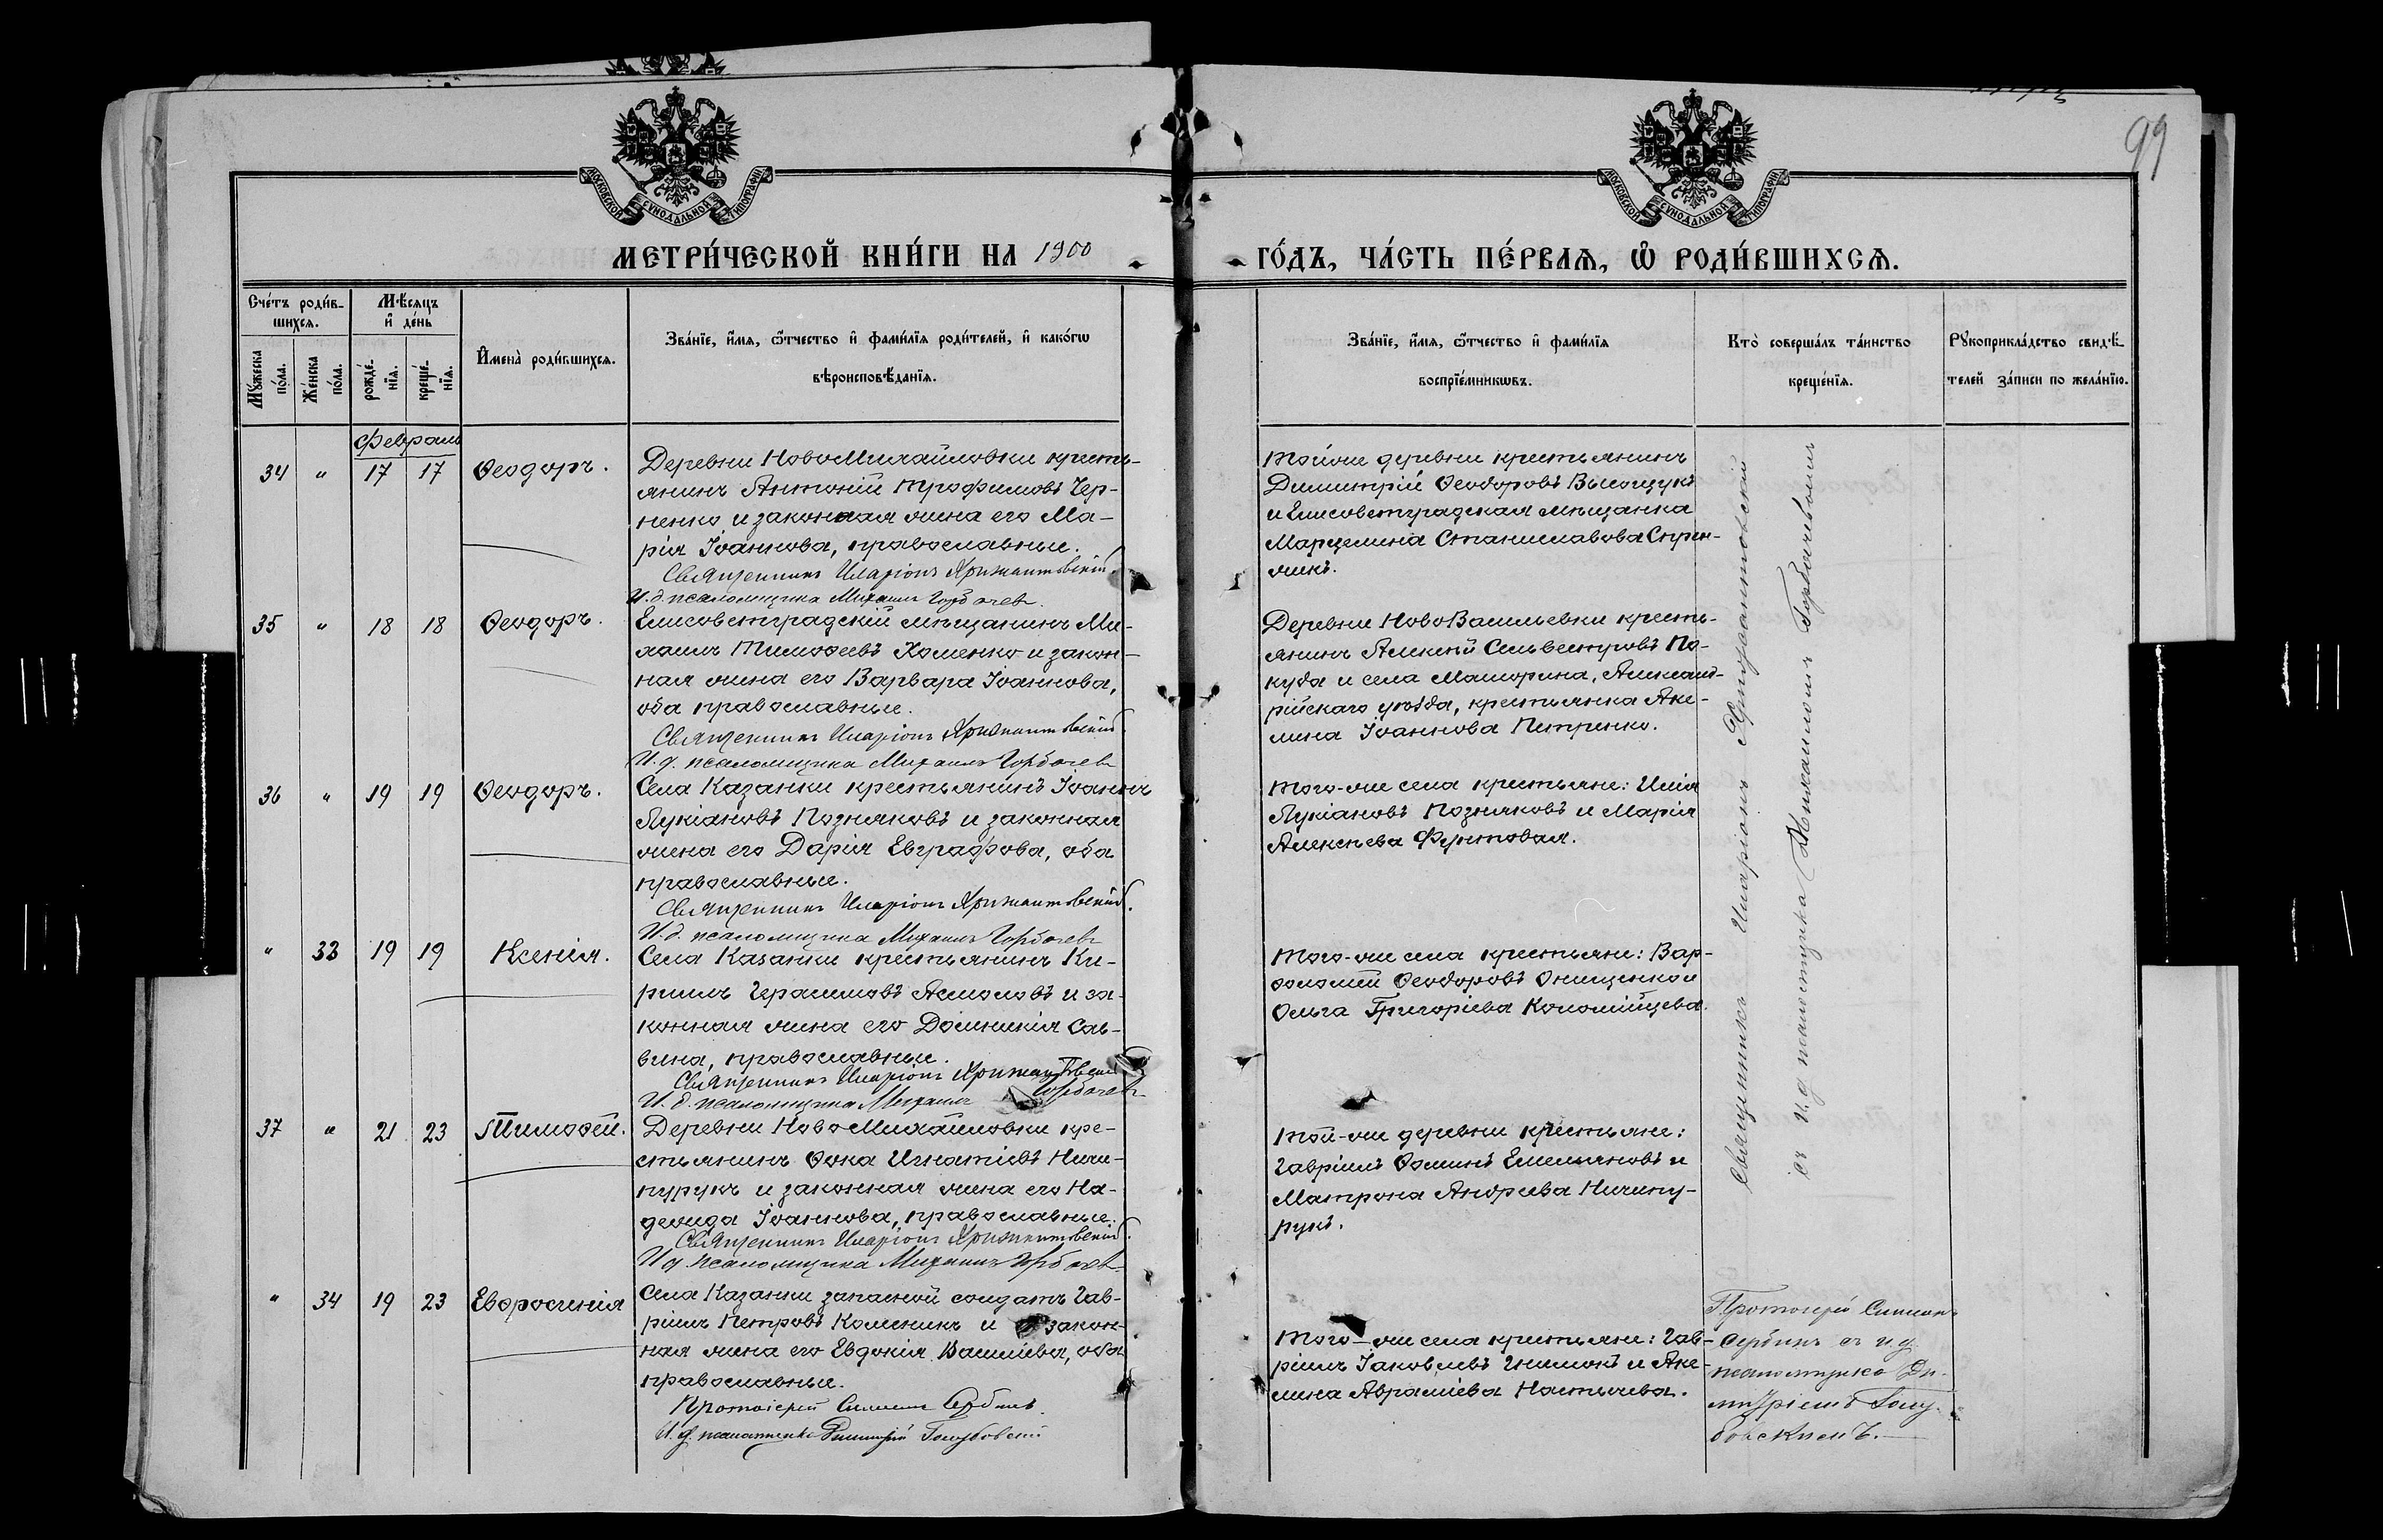 99
МОСКОВСКОЙ СѴНОДАЛЬНОЙ ТИПОГРАФІИ
МОСКОВСКОЙ СѴНОДАЛЬНОЙ ТИПОГРАФІИ
МЕТРИ́ЧЕСКОЙ КНИ́ГИ НА 1900
ГО́ДЪ, ЧА́СТЬ ПЕ́РВАѦ, Ѿ РОДИ́ВШИХСѦ.
Сче́тъ роди́в-
шихсѧ.
Мѣ́сяцъ
и҆ де́нь
Мꙋ́жеска
по́ла.
Же́нска
по́ла.
рожде́-
нїѧ.
креще́-
нїѧ.
И҆мена̀ роди́вшихсѧ.
Зва́нїе, и҆́мѧ, ѻ҆́тчество и҆ фами́лїѧ роди́телей, и҆ како́гѡ
вѣроисповѣ́данїѧ.
Зва́нїе, и҆́мѧ, ѻ҆́тчество и҆ фами́лїѧ
воспрїе́мникѡвъ.
Кто̀ соверша́лъ та́инство
креще́нїѧ.
Рꙋкоприкла́дство свидѣ́-
телей за́писи по жела́нїю.
Февраль
34 " 17 17 Ѳеодоръ.
Деревни НовоМихайловки кресть-
янинъ Антоній Трофимовъ Чер-
ненко и законная жена его Ма-
рія Іоаннова, православные.
Священникъ Иларіонъ Крижантовскій.
И. д. псаломщика Михаилъ Горбачев
Тойже деревни крестьянинъ
Димитрій Ѳеодоровъ Высоцукъ
и Елисоветградская мѣщанка
Марцелина Станиславова Стрен-
жикъ.
35 " 18 18 Ѳеодоръ.
Елисоветградскій мѣщанинъ Ми-
хаилъ Тимоѳеевъ Хоменко и закон-
ная жена его Варвара Іоаннова,
оба православные.
Священникъ Иларіонъ Крижантовскій
И. д. псаломщика Михаилъ Горбачев
Деревни НовоВасильевки кресть-
янинъ Алексій Сильвестровъ По-
куда и села Машорина, Александ-
рійскаго уѣзда, крестьянка Аки-
лина Іоаннова Петренко.
36 " 19 19 Ѳеодоръ.
Села Казанки крестьянинъ Іоаннъ
Лукіановъ Позняковъ и законная
жена его Дарія Евграфова, оба
православные.
Священникъ Иларіонъ Крижантовскій.
И. д. псаломщика Михаилъ Горбачев
Того-же села крестьяне: Илія
Лукіановъ Позняковъ и Марія
Алексѣева Фуртовая.
" 33 19 19 Ксенія.
Села Казанки крестьянинъ Ки-
риллъ Герасимовъ Асмоловъ и за-
конная жена его Домникія Сав-
вина, православные.
Священникъ Иларіонъ Крижантовскій
И. д. псаломщика Михаилъ Горбачев
Того-же села крестьяне: Вар-
ѳоломей Ѳеодоровъ Онищенко и
Ольга Григоріева Коломійцева.
37 " 21 23 Тимоѳей.
Деревни НовоМихайловки кре-
стьянинъ Ѳока Игнатіевъ Ничи-
пурукъ и законная жена его На-
дежда Іоаннова, православные.
Священникъ Иларіонъ Крижантовскій.
И д. псаломщика Михаилъ Горбачев
Той-же деревни крестьяне:
Гавріилъ Ѳоминъ Емельяновъ и
Матрона Андреева Ничипу-
рукъ.
Священникъ Иларіонъ Крижантовскій
съ и. д. псаломщика Михаиломъ Горбачевымъ
" 34 19 23 Евфросинія
Села Казанки запасной солдатъ Гав-
ріилъ Петровъ Колесникъ и закон-
ная жена его Евдокія Василіева, оба
православные.
Протоіерей Симеонъ Сербинъ.
И. д. псаломщика Димитрій Голубовскій
Того-же села крестьяне: Гав-
ріилъ Іаковлевъ Гнилюкъ и Аки-
лина Авраміева Настычева.
Протоіерей Симеонъ
Сербинъ съ и. д.
псаломщика Ди-
митріемъ Голу-
бовскимъ.